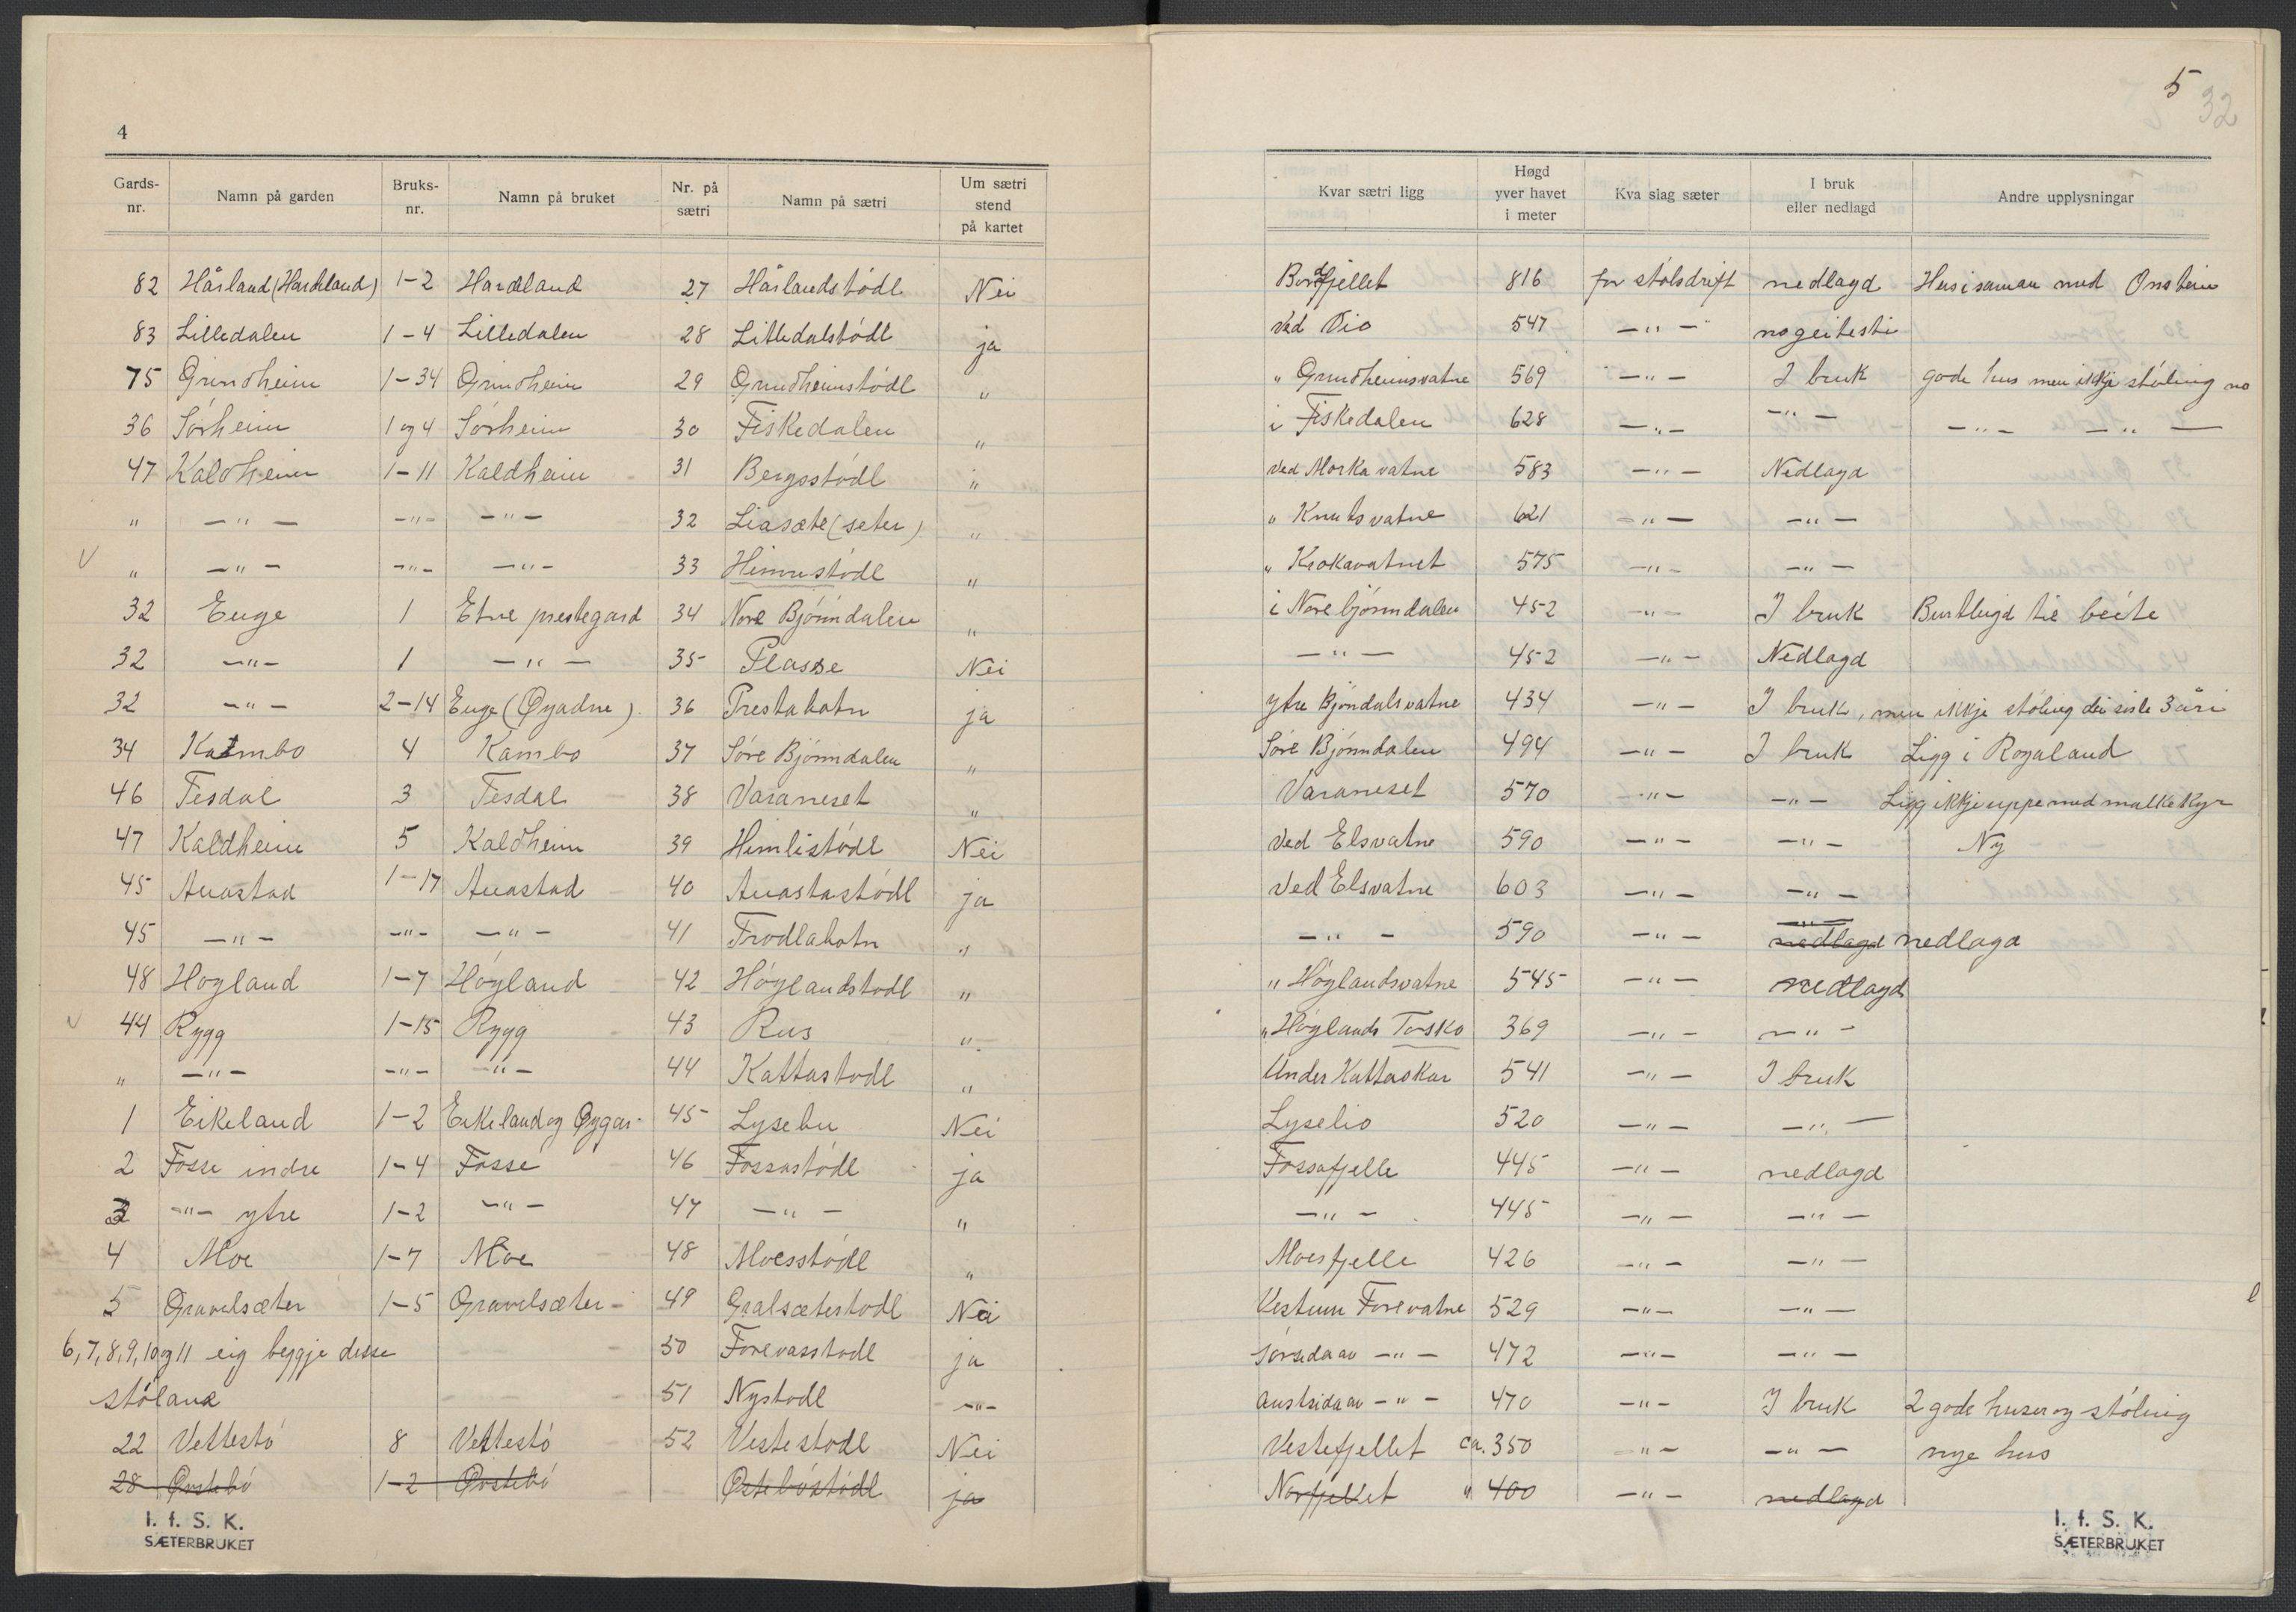 4
Gards-nr. Namn på garden Bruks-nr. Namn på bruket Nr. på sætri Namn på sætri Um sætri stend på kartet
82 Hårland (Hardeland) 1-2 Hardeland 27 Hårlandstödl Nei
83 Litledalen 1-4 Litledalen 28 Litledalstödl ja
75 Grindheim 1-34 Grindheim 29 Grindheimstödl "
36 Sörheim 1 og 4 Sörheim 30 Fiskedalen "
47 Kaldheim 1-11 Kaldheim 31 Bergsstödl "
" -"- -"- -"- 32 Liasæte (seter) "
V " -"- -"- -"- 33 Himnestödl "
32 Enge 1 Etne prestegard 34 Nore Bjönndalen "
32 -"- 1 -"- 35 Plassse Nei
32 -"- 2-14 Enge (Øyadne) 36 Prestabotn ja
34 Kambo 4 Kambo 37 Söre Bjönndalen "
46 Tesdal 3 Tesdal 38 Varaneset "
47 Kaldheim 5 Kaldheim 39 Himlistödl Nei
45 Austad 1-17 Austad 40 Austastödl ja
45 -"- -"- -"- 41 Trodlabotn "
48 Högland 1-7 Högland 42 Höglandstodl "
V 44 Rygg 1-15 Rygg 43 Rus "
" -"- -"- -"- 44 Kattastodl "
1 Eikeland 1-2 Eikeland og Øygar- 45 Lysebu Nei
2 Fosse indre 1-4 Fosse 46 Fossastödl ja
3 -"- ytre 1-2 -"- 47 -"- "
4 Moe 1-7 Moe 48 Moesstödl "
5 Gravelsæter 1-5 Gravelsæter 49 Gralsæterstodl Nei
6, 7, 8, 9, 10 og 11 eig beggje desse 50 Forevasstodl ja
stölane 51 Nystodl -"-
22 Vettestö 8 Vettestö 52 Vestestodl Nei
28 Østebö 1-2 Østebö Östeböstödl ja
I. f. S. K.
SÆTERBRUKET
5
32
Kvar sætri ligg Høgd yver havet i meter Kva slag sæter I bruk eller nedlagd Andre upplysningar
Bordfjellet 816 for stölsdrift nedlagd Hus i saman med Onstein
Ved Vio 547 -"- no geitesti
" Grindheimsvatne 569 -"- I bruk gode hus men ikkje stöling no
i Fiskedalen 628 -"- -"- -"- -"-
Ved Morkavatne 583 -"- Nedlagd
" Knutsvatne 621 -"- -"-
" Krokavatnet 575 -"- -"-
i Nore björnndalen 452 -"- I bruk Burtleigd til beite
-"- 452 -"- Nedlagd
ytre Bjöndalsvatne 434 -"- I bruk, men ikkje stöling dei siste 3 åri
Söre Bjönndalen 494 -"- I bruk Ligg i Rogaland
Varaneset 570 -"- -"- Ligg ikkje uppe med mulkekyr
Ved Elsvatne 590 -"- -"- Ny
Ved Elsvatne 603 -"- -"-
-"- 590 -"- -"- nedlagd nedlagd
" Höglandsvatne 545 -"- nedlagd
" Höglands Torsko 369 -"- -"-
Under Kattaskar 541 -"- I bruk
Lyselio 520 -"- -"-
Fossafjelle 445 -"- nedlagd
-"- 445 -"- -"-
Moesfjelle 426 -"- -"-
Vestum Forevatne 529 -"- -"-
Sörsida av -"- 472 -"- -"-
Austsida av -"- 470 -"- I bruk 2 gode huser og stöling
Vestefjellet ca. 350 -"- -"- nye hus
Norfjellet " 400 -"- nedlagd
I. f. S. K.
SÆTERBRUKET